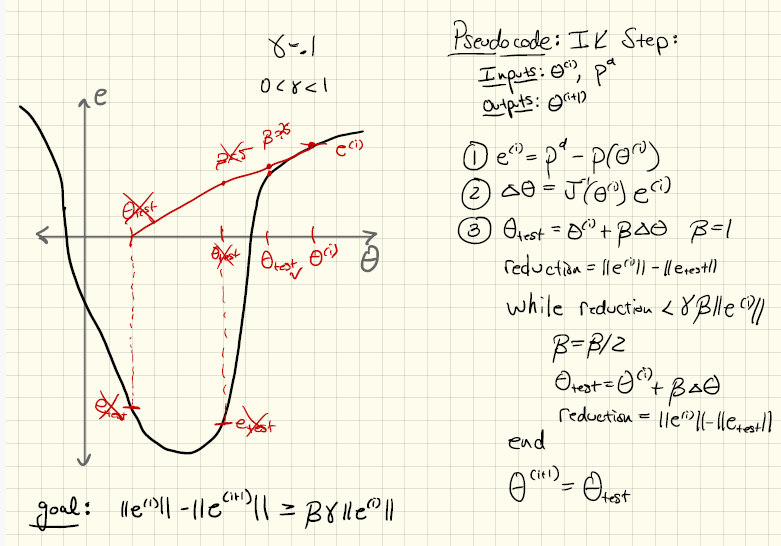 γ = .1
0 < γ < 1
e
β=.5
β=.25
e⁽ⁱ⁾
θtest
θtest
θtest ✓
θ⁽ⁱ⁾
θ
etest
etest
goal: ||e⁽ⁱ⁾|| - ||e⁽ⁱ⁺¹⁾|| ≥ βγ||e⁽ⁱ⁾||
Pseudocode: IK Step:
Inputs: θ⁽ⁱ⁾, pᵈ
Outputs: θ⁽ⁱ⁺¹⁾
① e⁽ⁱ⁾ = pᵈ - p(θ⁽ⁱ⁾)
② Δθ = J⁻¹(θ⁽ⁱ⁾) e⁽ⁱ⁾
③ θtest = θ⁽ⁱ⁾ + βΔθ β=1
reduction = ||e⁽ⁱ⁾|| - ||etest||
while reduction < γβ||e⁽ⁱ⁾||
β = β/2
θtest = θ⁽ⁱ⁾ + βΔθ
reduction = ||e⁽ⁱ⁾|| - ||etest||
end
θ⁽ⁱ⁺¹⁾ = θtest